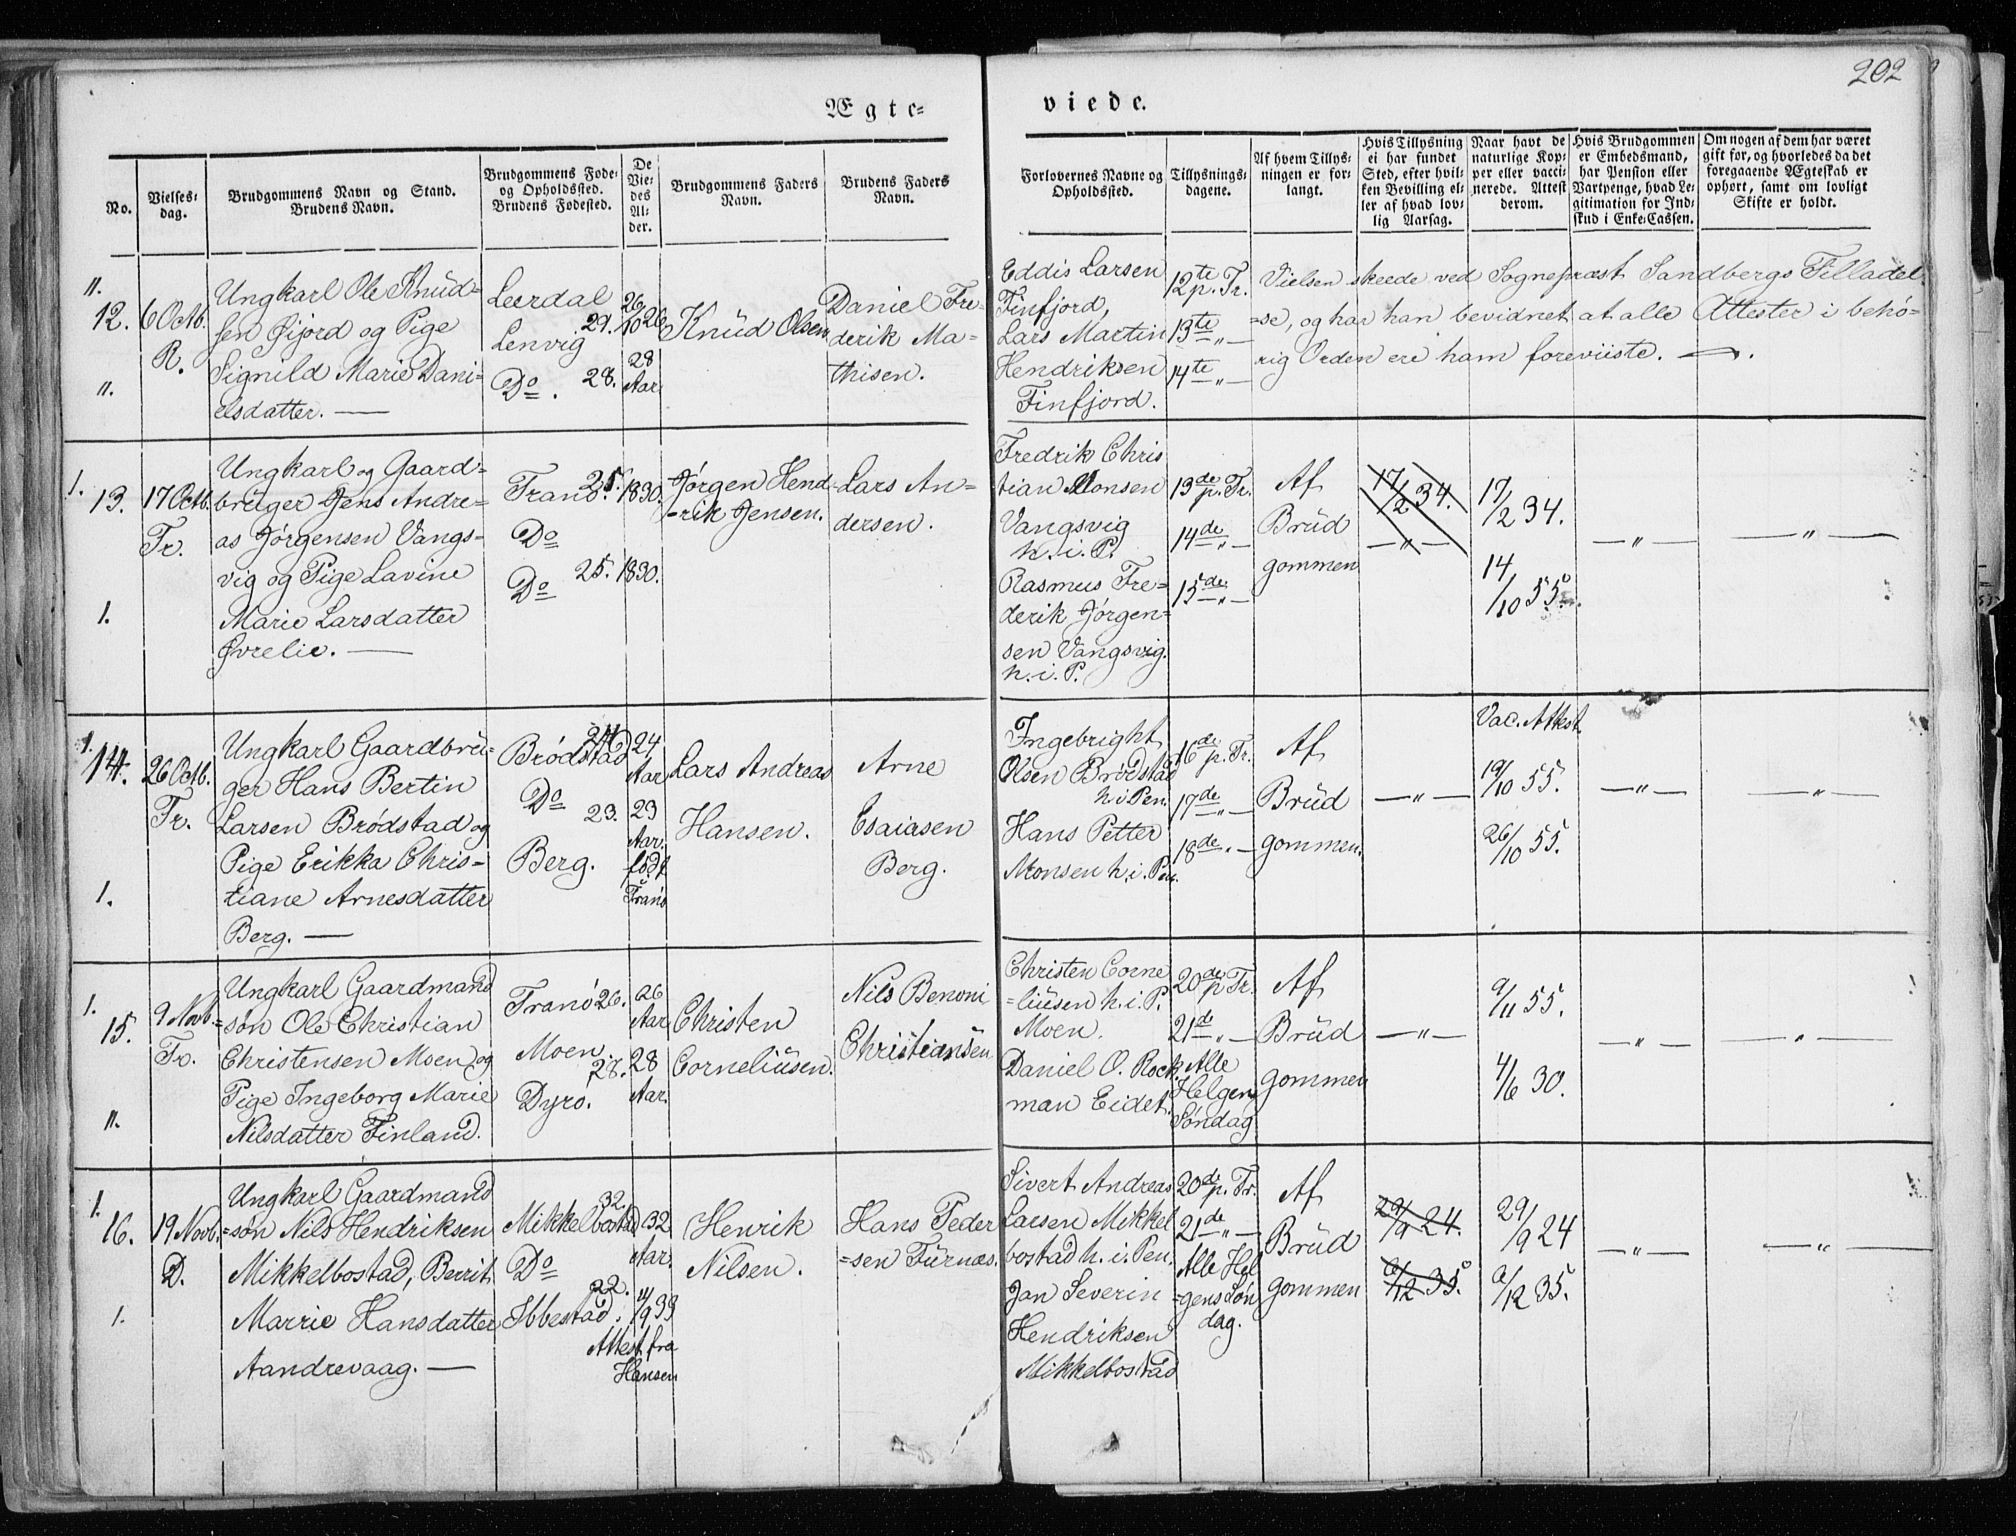 202
Ægte=
viede.
No.
Vielses-
dag.
Brudgommens Navn og Stand.
Brudens Navn.
Brudgommens Føde-
og Opholdssted.
Brudens Fødested.
De
Vie-
des
Al-
der.
Brudgommens Faders
Navn.
Brudens Faders
Navn.
Forlovernes Navne og
Opholdssted.
Tillysnings-
dagene.
Af hvem Tillys-
ningen er for-
langt.
Hvis Tillysning
ei har fundet
Sted, efter hvil-
ken Bevilling el-
ler af hvad lov-
lig Aarsag.
Naar havt de
naturlige Kop-
per eller vacci-
nerede. Attest
derom.
Hvis Brudgommen
er Embedsmand,
har Pension eller
Vartpenge, hvad Le-
gitimation for Ind-
skud i Enke-Cassen.
Om nogen af dem har været
gift før, og hvorledes da det
foregaaende Ægteskab er
ophørt, samt om lovligt
Skifte er holdt.
11.
12.
11.
6 Octb.
R.
Ungkarl Ole Knud-
sen Gjord og Pige
Signild Marie Dani-
elsdatter. —
Leerdal
29.
Lenvig
Do. 28.
26/10 26
28
Aar
Knud Olsen
Daniel Fre-
derik Ma-
thisen.
Eddis Larsen
Finfjord,
Lars Martin
Hendriksen
Finfjord.
12te p. Tr.
13te „ —
14te „ —
Vielsen skeede ved Sognepræst Sandbergs Tilladel-
=se, og har han bevidnet at alle Attester i behø-
rig Orden ere ham foreviiste. —
1.
13.
1.
17 Octb.
Tr.
Ungkarl og Gaard-
bruger Jens Andre-
as Jørgensen Vangs-
vig og Pige Lavine
Marie Larsdatter
Øvrelie. —
Tranø 25.
Do
Do 25.
1830.
1830.
Jørgen Hend-
-rik Jensen.
Lars An-
dersen.
Fredrik Chris
tian Monsen
Vangsvig
h. i. P.
Rasmus Fre-
derik Jørgen-
sen Vangsvig.
h. i. P.
13de p. Tr.
14de „ —
15de „ —
Af
Brud
gommen
17/2 34.
— „ —
17/2 34.
14/10 55.
— „ —
— „ —
1.
14.
1.
26 Octb.
Tr.
Ungkarl Gaardbru-
ger Hans Bertin
Larsen Brødstad og
Pige Erikka Chris-
tiane Arnesdatter
Berg. —
24
Brødstad
Do
23.
Berg.
24
Aar
23
Aar.
født
Tranø
Lars Andreas
Hansen.
Arne
Esaiasen
Berg.
Ingebright
Olsen Brødstad
h. i Pen.
Hans Petter
Monsen h. i. Pen.
16de p. Tr.
17de „ —
18de „ —
Af
Brud
gommen.
— „ —
Vac. Attest
19/10 55.
26/10 55.
— „ —
— „ —
1.
15.
11.
9 Novb.
Tr.
Ungkarl Gaardmand
søn Ole Christian
Christensen Moen og
Pige Ingeborg Marie
Nilsdatter Finland.
Tranø 26.
Moen.
28.
Dyrø.
26
Aar
28
Aar.
Christen
Corneliusen.
Nils Benoni
Christiansen
Christen Corne
=liusen h. i. P.
Moen.
Daniel O. Rock
man Eidet.
20de p Tr.
21de „ —
Alle
Helgen
Søndag
Af
Brud
gommen
— „ —
9/11 55.
4/6 30.
— „ —
— „ —
1.
16.
1.
19 Novb.
D.
Ungkarl Gaardmand
=søn Nils Hendriksen
Mikkelbostad, Berrit
Marrie Hansdatter
Aandrevaag. —
32.
Mikkelbostad
Do
22.
Ibbestad.
32
Aar.
11/9 33
Attest fra
Hansen
Henrik
Nilsen.
Hans Peder
=sen Furnæs.
Sivert Andreas
Larsen Mikkel
bostad h. i. Pen.
Jan Severin
Hendriksen
Mikkelbostad
20de p. Tr.
21de „ —
Alle Hel
=gens Søn
dag.
Af
Brud
gommen
29/9 24.
9/12 35.
29/9 24
9/12 35.
— „ —
— „ —